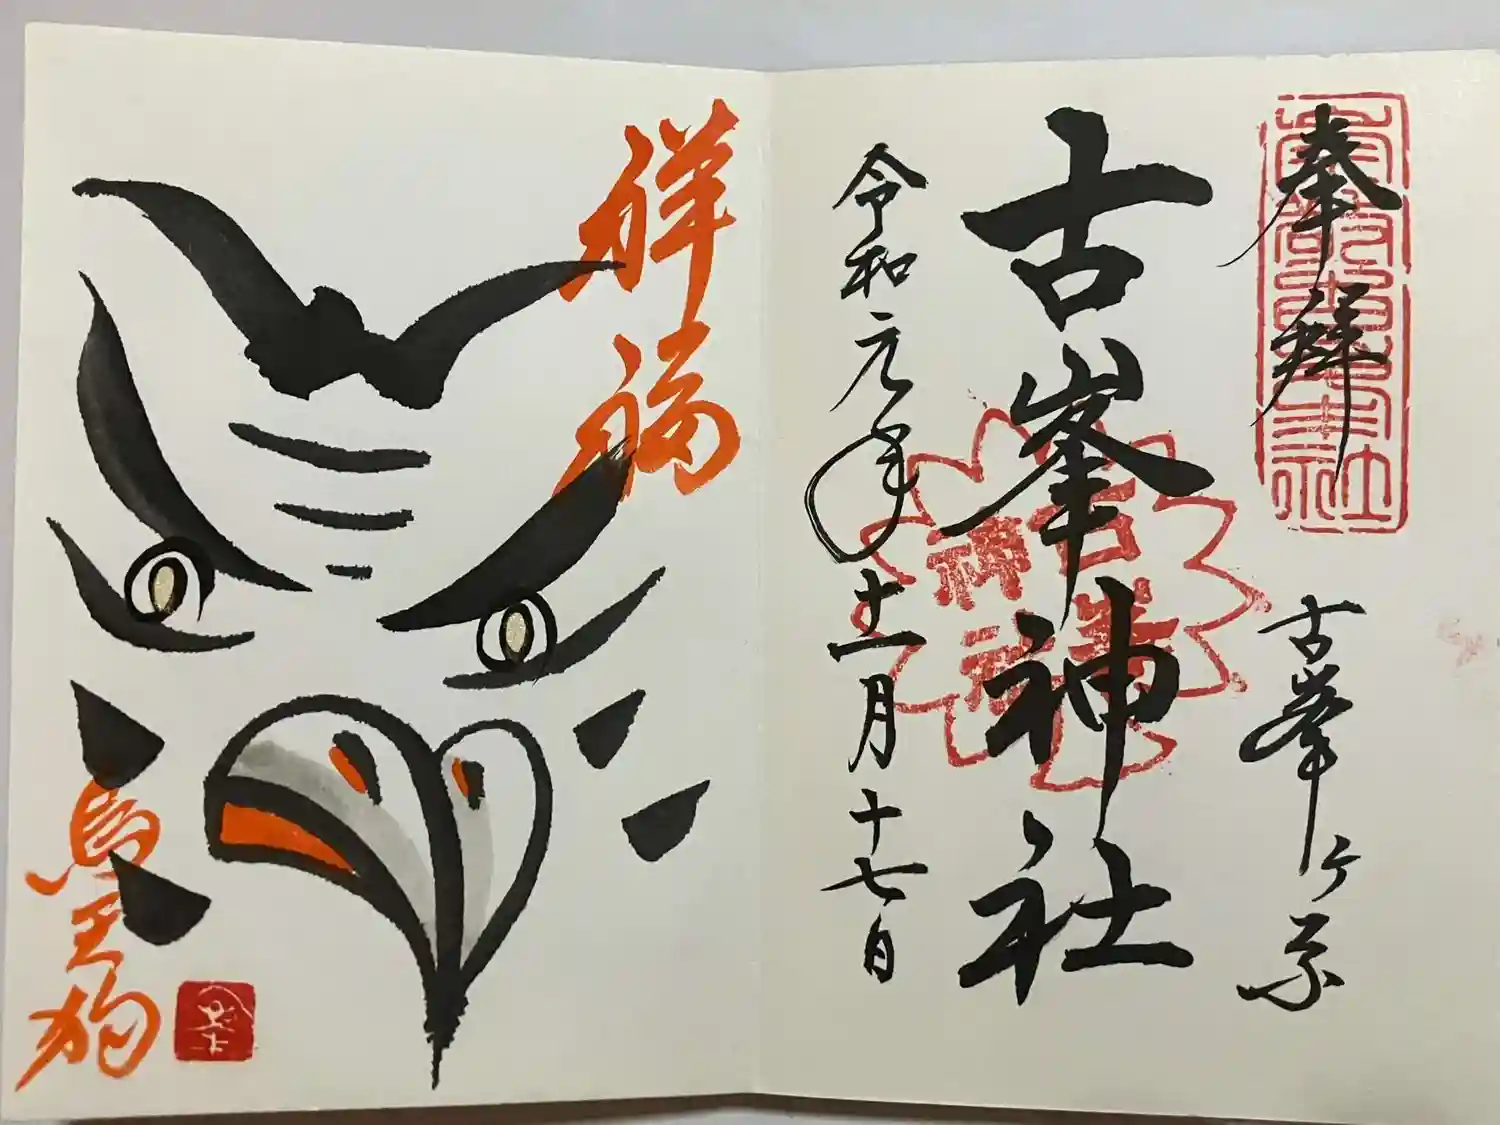 奉拝
古峯ヶ原
古峯神社
令和元年十一月十七日
古峯
神社
祥福
烏天狗